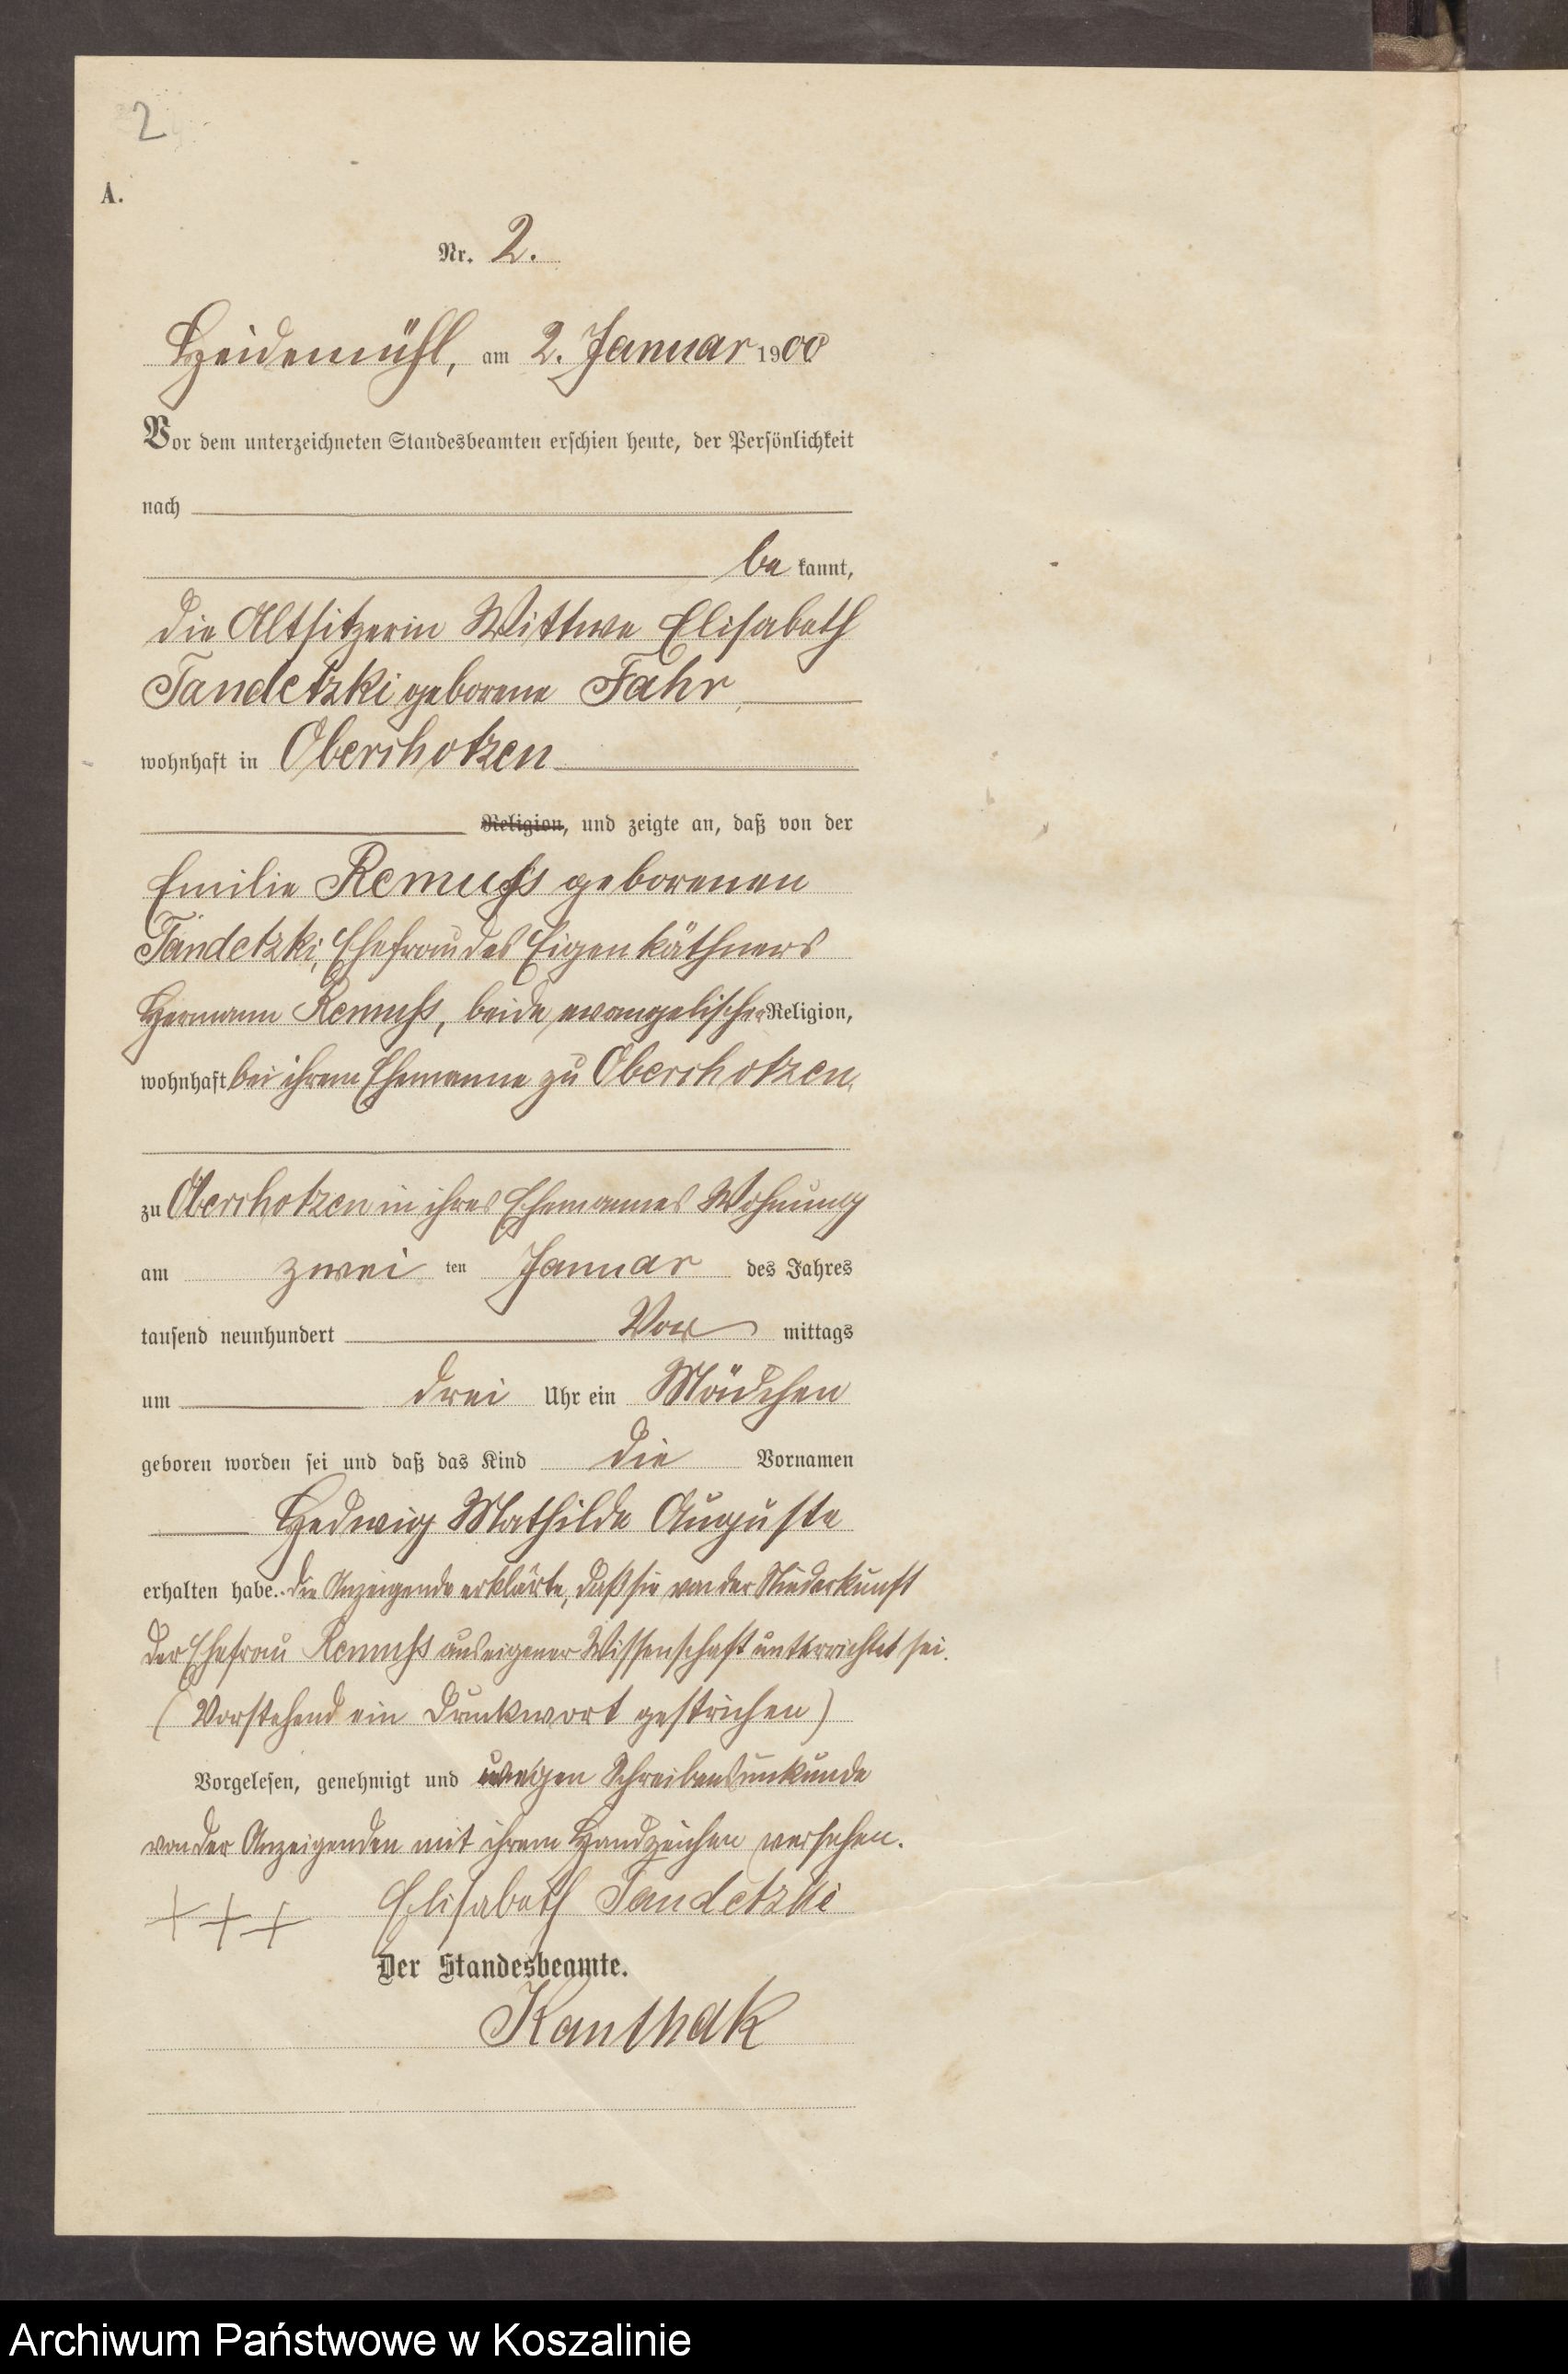 2
A.
Nr. 2.
Heidemühl, am 2. Januar 1900
Vor dem unterzeichneten Standesbeamten erschien heute, der Persönlichkeit
nach
be kannt,
die Altsitzerin Wittwe Elisabeth
Tandetzki geborene Fahr,
wohnhaft in Oberschotzen
Religion, und zeigte an, daß von der
Emilie Remuss geborenen
Tandetzki, Ehefrau des Eigenkäthners
Hermann Remuss, beide evangelischer Religion,
wohnhaft bei ihrem Ehemanne zu Oberschotzen,
zu Oberschotzen in ihres Ehemannes Wohnung
am zwei ten Januar des Jahres
tausend neunhundert Vor mittags
um drei Uhr ein Mädchen
geboren worden sei und daß das Kind die Vornamen
Hedwig Mathilde Auguste
erhalten habe. Die Anzeigende erklärte, daß sie von der Niederkunft
der Ehefrau Remuss aus eigener Wissenschaft unterrichtet sei.
(Vorstehend ein Druckwort gestrichen)
Vorgelesen, genehmigt und wegen Schreibensunkunde
von der Anzeigenden mit ihrem Handzeichen versehen.
+++ Elisabeth Tandetzki
Der Standesbeamte.
Kanthak
Archiwum Państwowe w Koszalinie